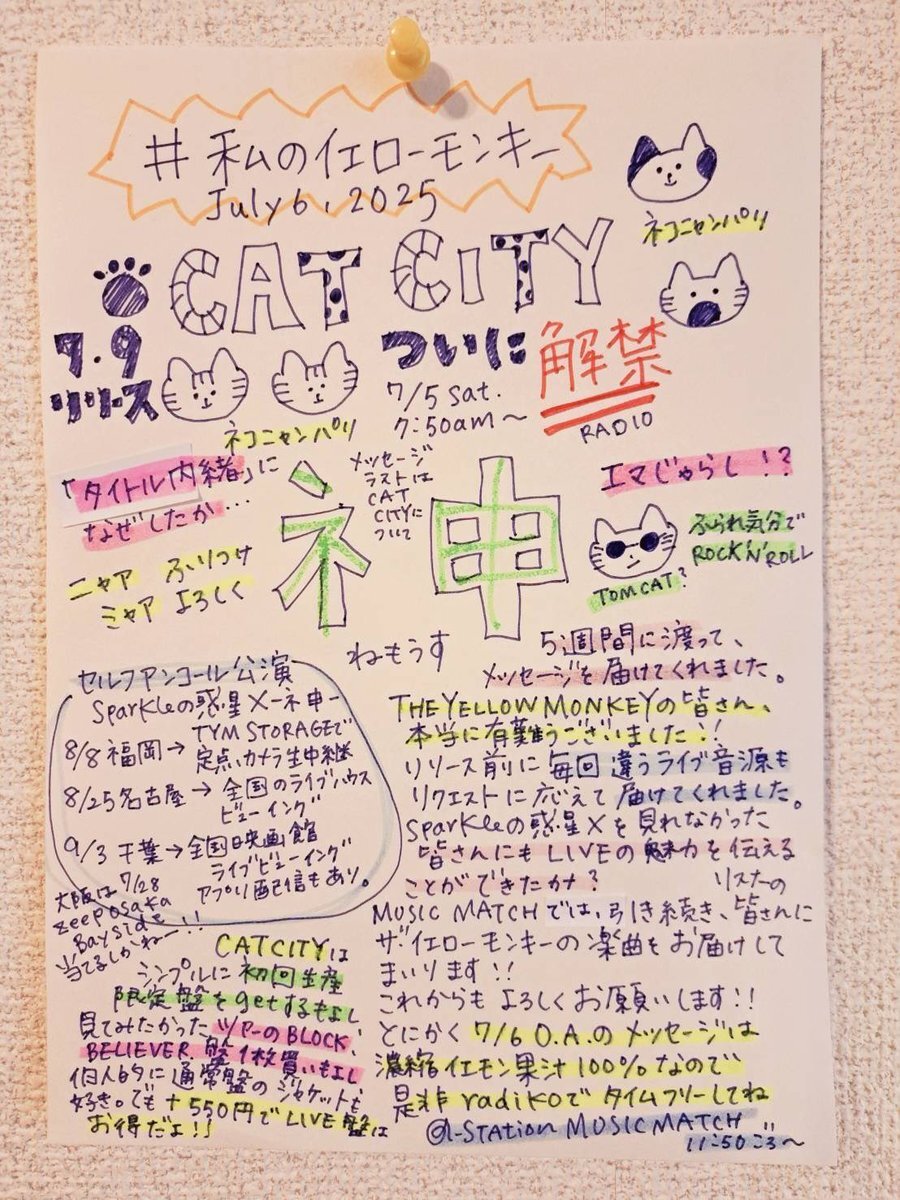 # 私のイエローモンキー
July 6, 2025
CAT CITY
ネコニャンパリ
7.9
リリース
ネコニャンパリ
ついに
解禁
7/5 sat.
7:50am〜
RADIO
「タイトル内緒」に
なぜしたか…
ニャア ふりつけ
ミャア よろしく
メッセージ
ラストは
CAT
CITYに
ついて
ネ申
エマじゃらし!?
ふられ気分で
ROCK'N'ROLL
TOMCAT?
ねもうす
セルフアンコール公演
Sparkleの惑星X-ネ申-
8/8 福岡→TYM STORAGEで
定点カメラ生中継
8/25 名古屋→全国のライブハウス
ビューイング
9/3 千葉→全国映画館
ライブビューイング
アプリ配信もあり。
大阪は7/28
zeepOsaka
Baysideを
当てるしかねー!!
CATCITYは
シンプルに初回生産
限定盤をgetするもよし
見てみたかったツアーのBLOCK、
BELIEVER.盤1枚買いもよし
個人的に通常盤のジャケットも
好き。でも+550円でLIVE盤は
お得だよ!!
5週間に渡って、
メッセージを届けてくれました。
THE YELLOW MONKEYの皆さん、
本当に有難うございました!!
リリース前に毎回違うライブ音源も
リクエストに応えて届けてくれました。
Sparkleの惑星Xを見れなかった
皆さんにもLIVEの魅力を伝える
ことができたかナ?
リスナーの
MUSIC MATCHでは、引き続き、皆さんに
ザ・イエローモンキーの楽曲をお届けして
まいります!!
これからもよろしくお願いします!!
とにかく7/6 O.A.のメッセージは
濃縮イエモン果汁100%なので
是非radikoでタイムフリーしてね
@l-STATION MUSIC MATCH
11:50ごろ〜